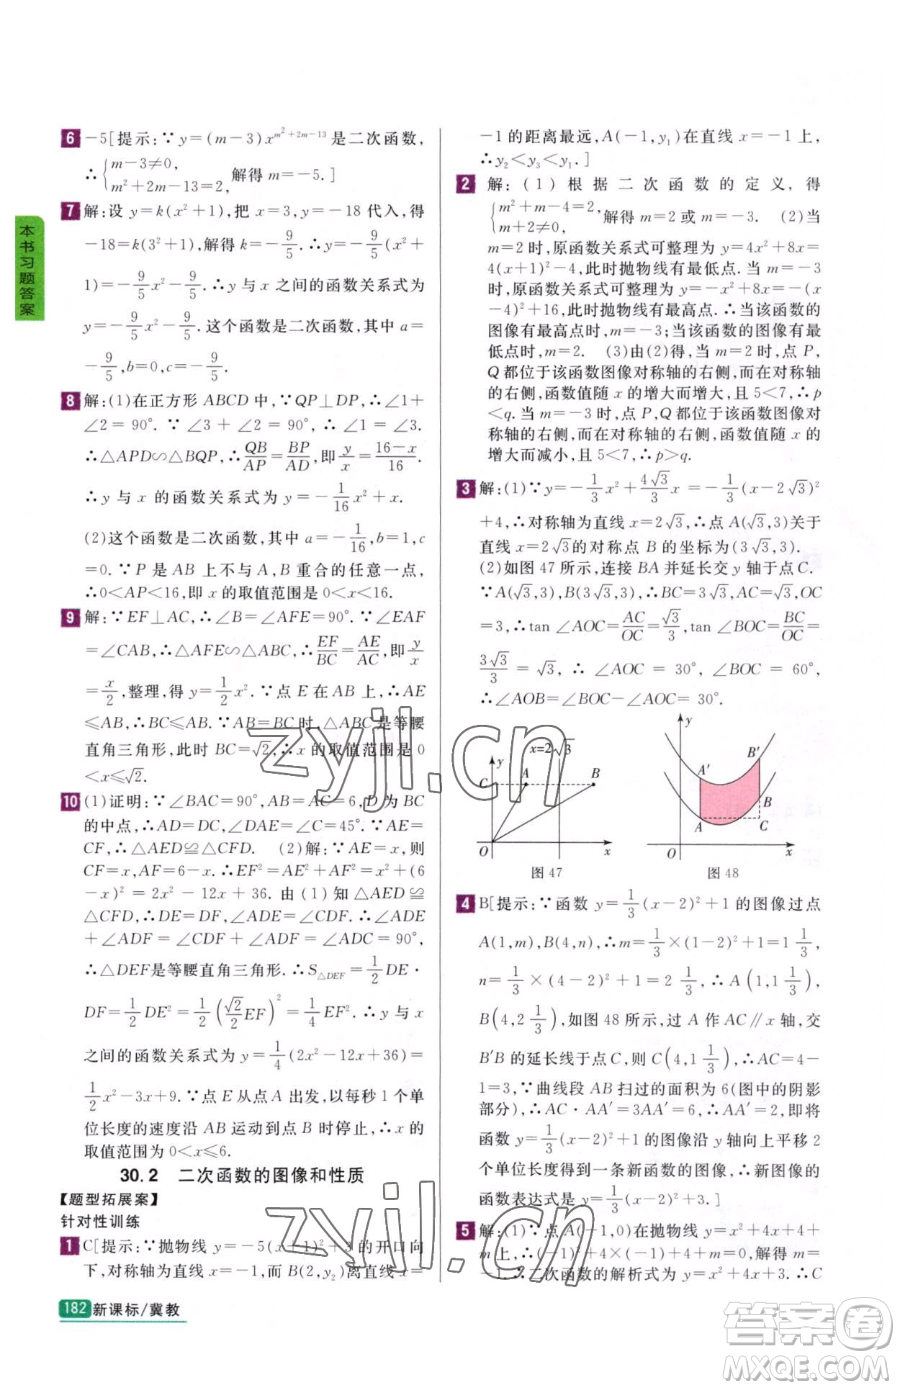 本书习题答案
6 －5[提示:∵y=(m－3)x^{m²+2m－13}是二次函数,
∴{m－3≠0, m²+2m－13=2, 解得 m=－5.]
7 解:设 y=k(x²+1),把 x=3,y=－18 代入,得
－18=k(3²+1),解得 k=－9/5.∴y=－9/5(x²+
1)=－9/5x²－9/5.∴y 与 x 之间的函数关系式为
y=－9/5x²－9/5.这个函数是二次函数,其中 a=
－9/5,b=0,c=－9/5.
8 解:(1)在正方形 ABCD 中,∵QP⊥DP,∴∠1+
∠2=90°.∵∠3+∠2=90°,∴∠1=∠3.
∴△APD∽△BQP,∴QB/AP=BP/AD,即 y/x=(16－x)/16.
∴y 与 x 的函数关系式为 y=－1/16x²+x.
(2)这个函数是二次函数,其中 a=－1/16,b=1,c
=0.∵P 是 AB 上与 A、B 不重合的任意一点,
∴0<AP<16,即 x 的取值范围是 0<x<16.
9 解:∵EF⊥AC,∴∠B=∠AFE=90°.∵∠EAF
=∠CAB,∴△AFE∽△ABC,∴EF/BC=AE/AC,即 y/x
=x/2,整理,得 y=1/2x².∵点 E 在 AB 上,∴AE
≤AB,∴BC≤AB.∵AB=BC 时,△ABC 是等腰
直角三角形,此时 BC=√2,∴x 的取值范围是 0
<x≤√2.
10 (1)证明:∵∠BAC=90°,AB=AC=6,D 为 BC
的中点,∴AD=DC,∠DAE=∠C=45°.∵AE=
CF,∴△AED≌△CFD. (2)解:∵AE=x,则
CF=x,AF=6－x.∴EF²=AE²+AF²=x²+
(6－x)²=2x²－12x+36.由(1)知△AED≌
△CFD,∴DE=DF,∠ADE=∠CDF.∴∠ADE
+∠ADF=∠CDF+∠ADF=∠ADC=90°,
∴△DEF是等腰直角三角形.∴S△DEF=1/2DE·
DF=1/2DE²=1/2(√2/2EF)²=1/4EF².∴y 与 x
之间的函数关系式为 y=1/4(2x²－12x+36)=
1/2x²－3x+9.∵点 E 从点 A 出发,以每秒 1 个
单位长度的速度沿 AB 运动到点 B 时停止,∴x 的
取值范围为 0<x≤6.
30.2 二次函数的图像和性质
【题型拓展案】
针对性训练
1 C[提示:∵抛物线 y=－5(x+1)²+3 的开口向
下,对称轴为直线 x=－1,而 B(2,y₂)离直线 x=
182 新课标/冀教
－1 的距离最远,A(－1,y₁)在直线 x=－1 上,
∴y₂<y₃<y₁.]
2 解:(1)根据二次函数的定义,得
{m²+m－4=2, m+2≠0, 解得 m=2 或 m=－3. (2)当
m=2 时,原函数关系式可整理为 y=4x²+8x=
4(x+1)²－4,此时抛物线有最低点;当 m=－3
时,原函数关系式可整理为 y=－x²+8x=－(x－
4)²+16,此时抛物线有最高点.∴当该函数的
图像有最高点时,m=－3;当该函数的图像有最
低点时,m=2. (3)由(2)得,当 m=2 时,点 P、
Q 都位于该函数图像对称轴的右侧,而对称轴的右
侧,函数值随 x 的增大而增大,且 5<7,∴p
<q.当 m=－3 时,点 P、Q 都位于该函数图像对
称轴的右侧,而对称轴的右侧,函数值随 x 的
增大而减小,且 5<7,∴p>q.
3 解:(1)∵y=－1/3x²+4√3/3x=－1/3(x－2√3)²
+4,∴对称轴为直线 x=2√3,∴点 A(√3,3)关于
直线 x=2√3 的对称点 B 的坐标为(3√3,3).
(2)如图 47 所示,连接 BA 并延长交 y 轴于点 C.
∵A(√3,3),B(3√3,3),∴AC=√3,BC=3√3,OC
=3,∴tan∠AOC=AC/OC=√3/3,tan∠BOC=BC/OC=
3√3/3=√3,∴∠AOC=30°,∠BOC=60°,
∴∠AOB=∠BOC－∠AOC=30°.
y x=2√3
C A B
O x
图 47
y
A′ B′
B
A C
O x
图 48
4 B[提示:∵函数 y=1/3(x－2)²+1 的图像过点
A(1,m),B(4,n),∴m=1/3×(1－2)²+1=1 1/3,
n=1/3×(4－2)²+1=2 1/3,∴A(1,1 1/3),
B(4,2 1/3),如图 48 所示,过 A 作 AC∥x 轴,交
B′B 的延长线于点 C,则 C(4,1 1/3),∴AC=4－
1=3,∵曲线段 AB 扫过的面积为 6(图中的阴影
部分),∴AC·AA′=3AA′=6,∴AA′=2,即将
函数 y=1/3(x－2)²+1 的图像沿 y 轴向上平移 2
个单位长度得到一条新函数的图像,∴新图像的
函数表达式是 y=1/3(x－2)²+3.]
5 解:(1)∵点 A(－1,0)在抛物线 y=x²+4x+4+
m 上,∴0=(－1)²+4×(－1)+4+m,解得 m=
－1,∴二次函数的解析式为 y=x²+4x+3,∴C
zyjl.cn
zyjl.cn
答案圈
MXQE.COM